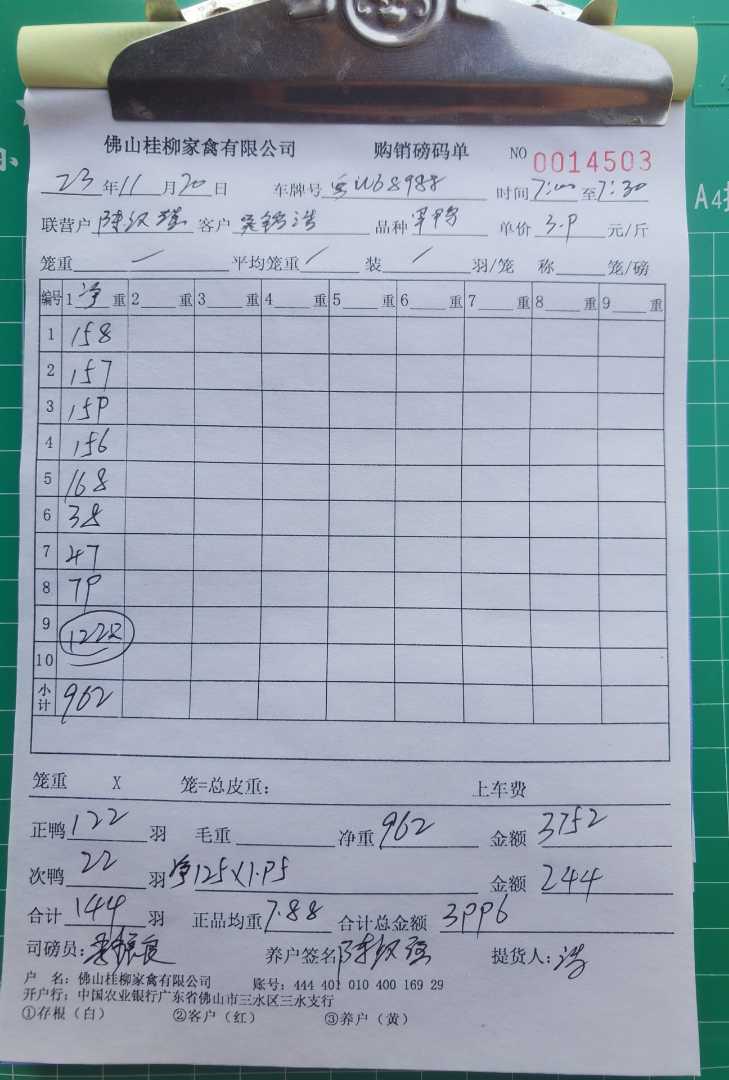 佛山桂柳家禽有限公司 购销磅码单 NO 0014503
23年11月20日 车牌号 粤W68988 时间7:00至7:30
联营户 客户 品种 单价 3.9 元/斤
笼重 / 平均笼重 / 装 / 羽/笼 称 笼/磅
编号 1净重 2 重 3 重 4 重 5 重 6 重 7 重 8 重 9 重
1 158
2 157
3 159
4 156
5 168
6 38
7 47
8 79
9 122只
10
小计 962
笼重 X 笼=总皮重： 上车费
正鸭 122 羽 毛重 净重 962 金额 3752
次鸭 22 羽 净125×1.95 金额 244
合计 144 羽 正品均重 7.88 合计总金额 3996
司磅员： 养户签名 提货人：浩
户 名：佛山桂柳家禽有限公司 账号：444 401 010 400 169 29
开户行：中国农业银行广东省佛山市三水区三水支行
①存根（白） ②客户（红） ③养户（黄）
A4